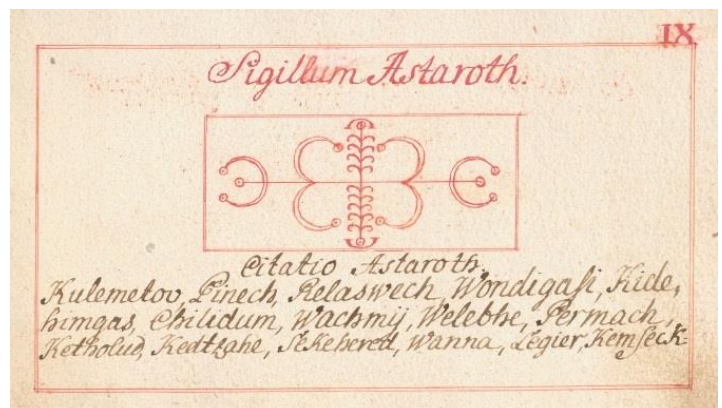 IX
Sigillum Astaroth.
Citatio Astaroth.
Kulemetov, Pinech, Relaswech, Wondigaſi, Kide,
himgas, Chilidum, Wachmij, Welebhe, Permach,
Ketholud, Kedtzahe, Sekehered, Wanna, Legier, Kemſeck=